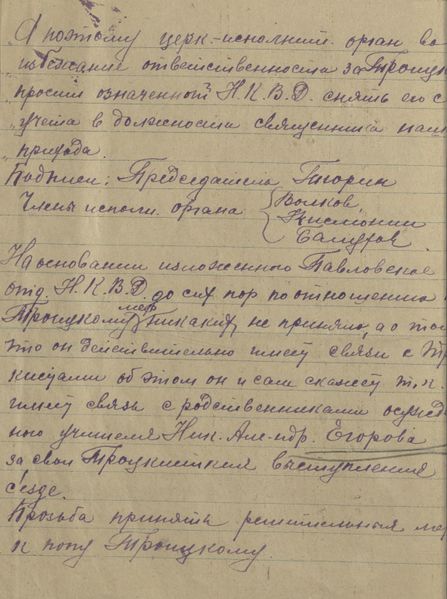 А поэтому церк.-исполнит. орган во
избежание ответственности за Троцк
просит означенный Н.К.В.Д. снять его с
учета в должности священника наш
прихода.
Подписи: Председатель
Члены исполн. органа Волков
На основании изложенного Павловское
отд. Н.К.В.Д. до сих пор по отношению
Троцкому мер никаких не приняло, а о том
что он действительно имеет связи с Тр
кистами об этом он и сам скажет т.к
имеет связь с родственниками осужд
ного учителя Ник. Але-ндр. Егорова
за свои Троцкистския выступления
с'езде.
Просьба принять решительныя ме
к попу Троцкому.